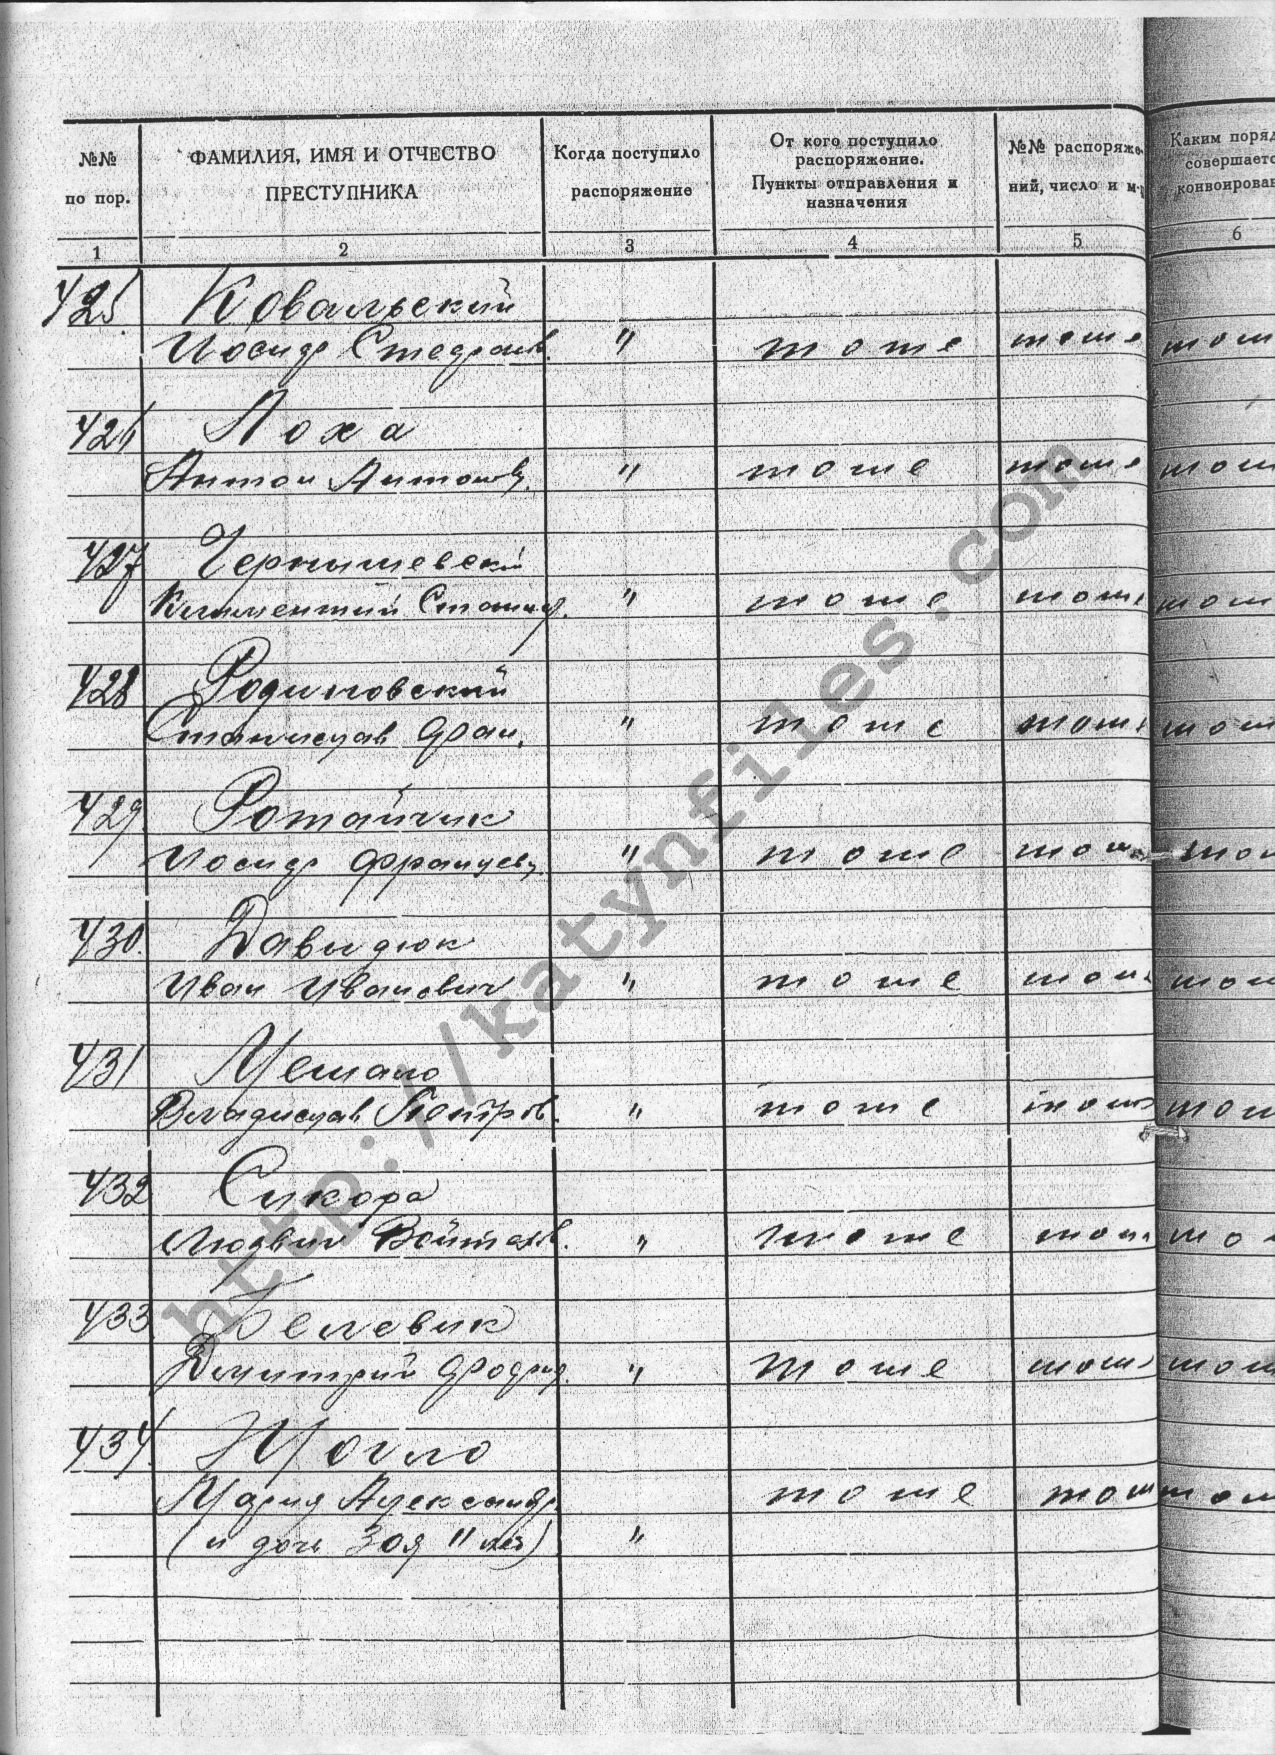 №№ по пор. ФАМИЛИЯ, ИМЯ И ОТЧЕСТВО ПРЕСТУПНИКА Когда поступило распоряжение От кого поступило распоряжение. Пункты отправления и назначения №№ распоряже- ний, число и м- Каким поряд совершаетс конвоирован
1 2 3 4 5 6
425. Ковальский
Иосиф " тоже тоже тож
426 Лоха
Антон Антонов. " тоже тоже тож
427 Чернышевский
Климентий Станисл. " тоже тоже тож
428 Родиновский
Станислав Фран. " тоже тоже тож
429. Ротайчик
Иосиф Францев. " тоже тож тож
430. Давидюк
Иван Иванович " тоже тож тож
431 Мешало
Владислав Петров. " тоже тож тож
432 Сикора
Людвиг Войтехов. " тоже тож то
433 Белевик
Дмитрий " тоже тож тож
434.
Мария Александр. тоже тож тож
(и дочь Зоя 11 лет) "
http://katynfiles.com